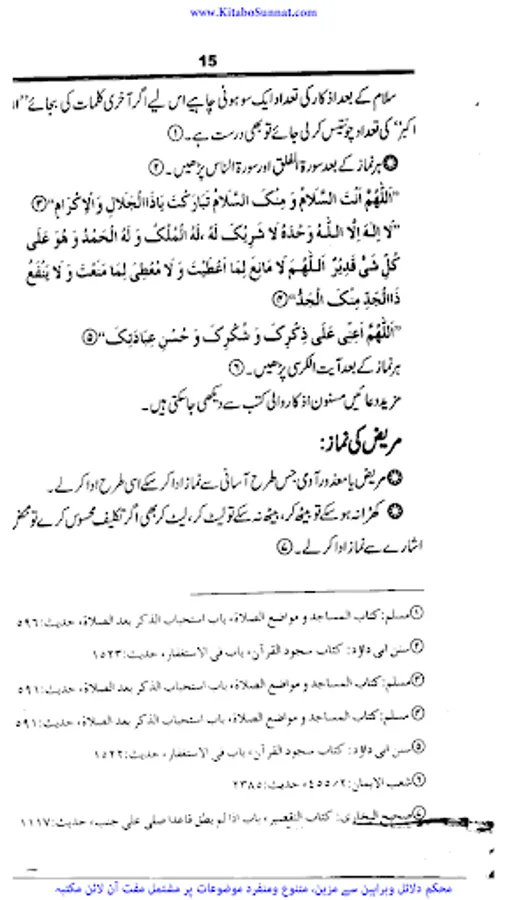 www.KitaboSunnat.com
15
سلام کے بعد اذکار کی تعداد ایک سو ہونی چاہیے اس لیے اگر آخری کلمات کی بجائے ”ا
اکبر“ کی تعداد چونتیس کر لی جائے تو بھی درست ہے۔①
ہر نماز کے بعد سورۃ الفلق اور سورۃ الناس پڑھیں۔②
”اَللّٰهُمَّ اَنْتَ السَّلَامُ وَ مِنْکَ السَّلَامُ تَبَارَکْتَ یَاذَاالْجَلَالِ وَ الْاِکْرَامِ“③
”لَا اِلٰهَ اِلَّا اللّٰهُ وَحْدَهٗ لَا شَرِیْکَ لَهٗ ،لَهُ الْمُلْکُ وَ لَهُ الْحَمْدُ وَ هُوَ عَلٰی
کُلِّ شَیْءٍ قَدِیْرٌ اَللّٰهُمَّ لَا مَانِعَ لِمَا اَعْطَیْتَ وَ لَا مُعْطِیَ لِمَا مَنَعْتَ وَ لَا یَنْفَعُ
ذَاالْجَدِّ مِنْکَ الْجَدُّ“④
”اَللّٰهُمَّ اَعِنِّی عَلٰی ذِکْرِکَ وَ شُکْرِکَ وَ حُسْنِ عِبَادَتِکَ“⑤
ہر نماز کے بعد آیت الکرسی پڑھیں۔⑥
مزید دعائیں مسنون اذکار والی کتب سے دیکھی جاسکتی ہیں۔
مریض کی نماز:
مریض یا معذور آدمی جس طرح آسانی سے نماز ادا کر سکے اسی طرح ادا کرلے۔
کھڑا نہ ہو سکے تو بیٹھ کر، بیٹھ نہ سکے تو لیٹ کر، لیٹ کر بھی اگر تکلیف محسوس کرے تو محض
اشارے سے نماز ادا کرلے۔⑦
①مسلم: کتاب المساجد و مواضع الصلاة، باب استحباب الذکر بعد الصلاة، حدیث:۵۹۶
②سنن ابی داؤد: کتاب سجود القرآن، باب فی الاستغفار، حدیث:۱۵۲۳
③مسلم: کتاب المساجد و مواضع الصلاة، باب استحباب الذکر بعد الصلاة، حدیث:۵۹۱
④مسلم: کتاب المساجد و مواضع الصلاة، باب استحباب الذکر بعد الصلاة، حدیث:۵۹۱
⑤سنن ابی داؤد: کتاب سجود القرآن، باب فی الاستغفار، حدیث:۱۵۲۲
⑥شعب الایمان: ۲/۴۵۵، حدیث:۲۳۸۵
صحیح البخاری: کتاب التقصیر، باب اذا لم یطق قاعدا صلی علی جنب، حدیث:۱۱۱۷
محکم دلائل وبراہین سے مزین، متنوع ومنفرد موضوعات پر مشتمل مفت آن لائن مکتبہ